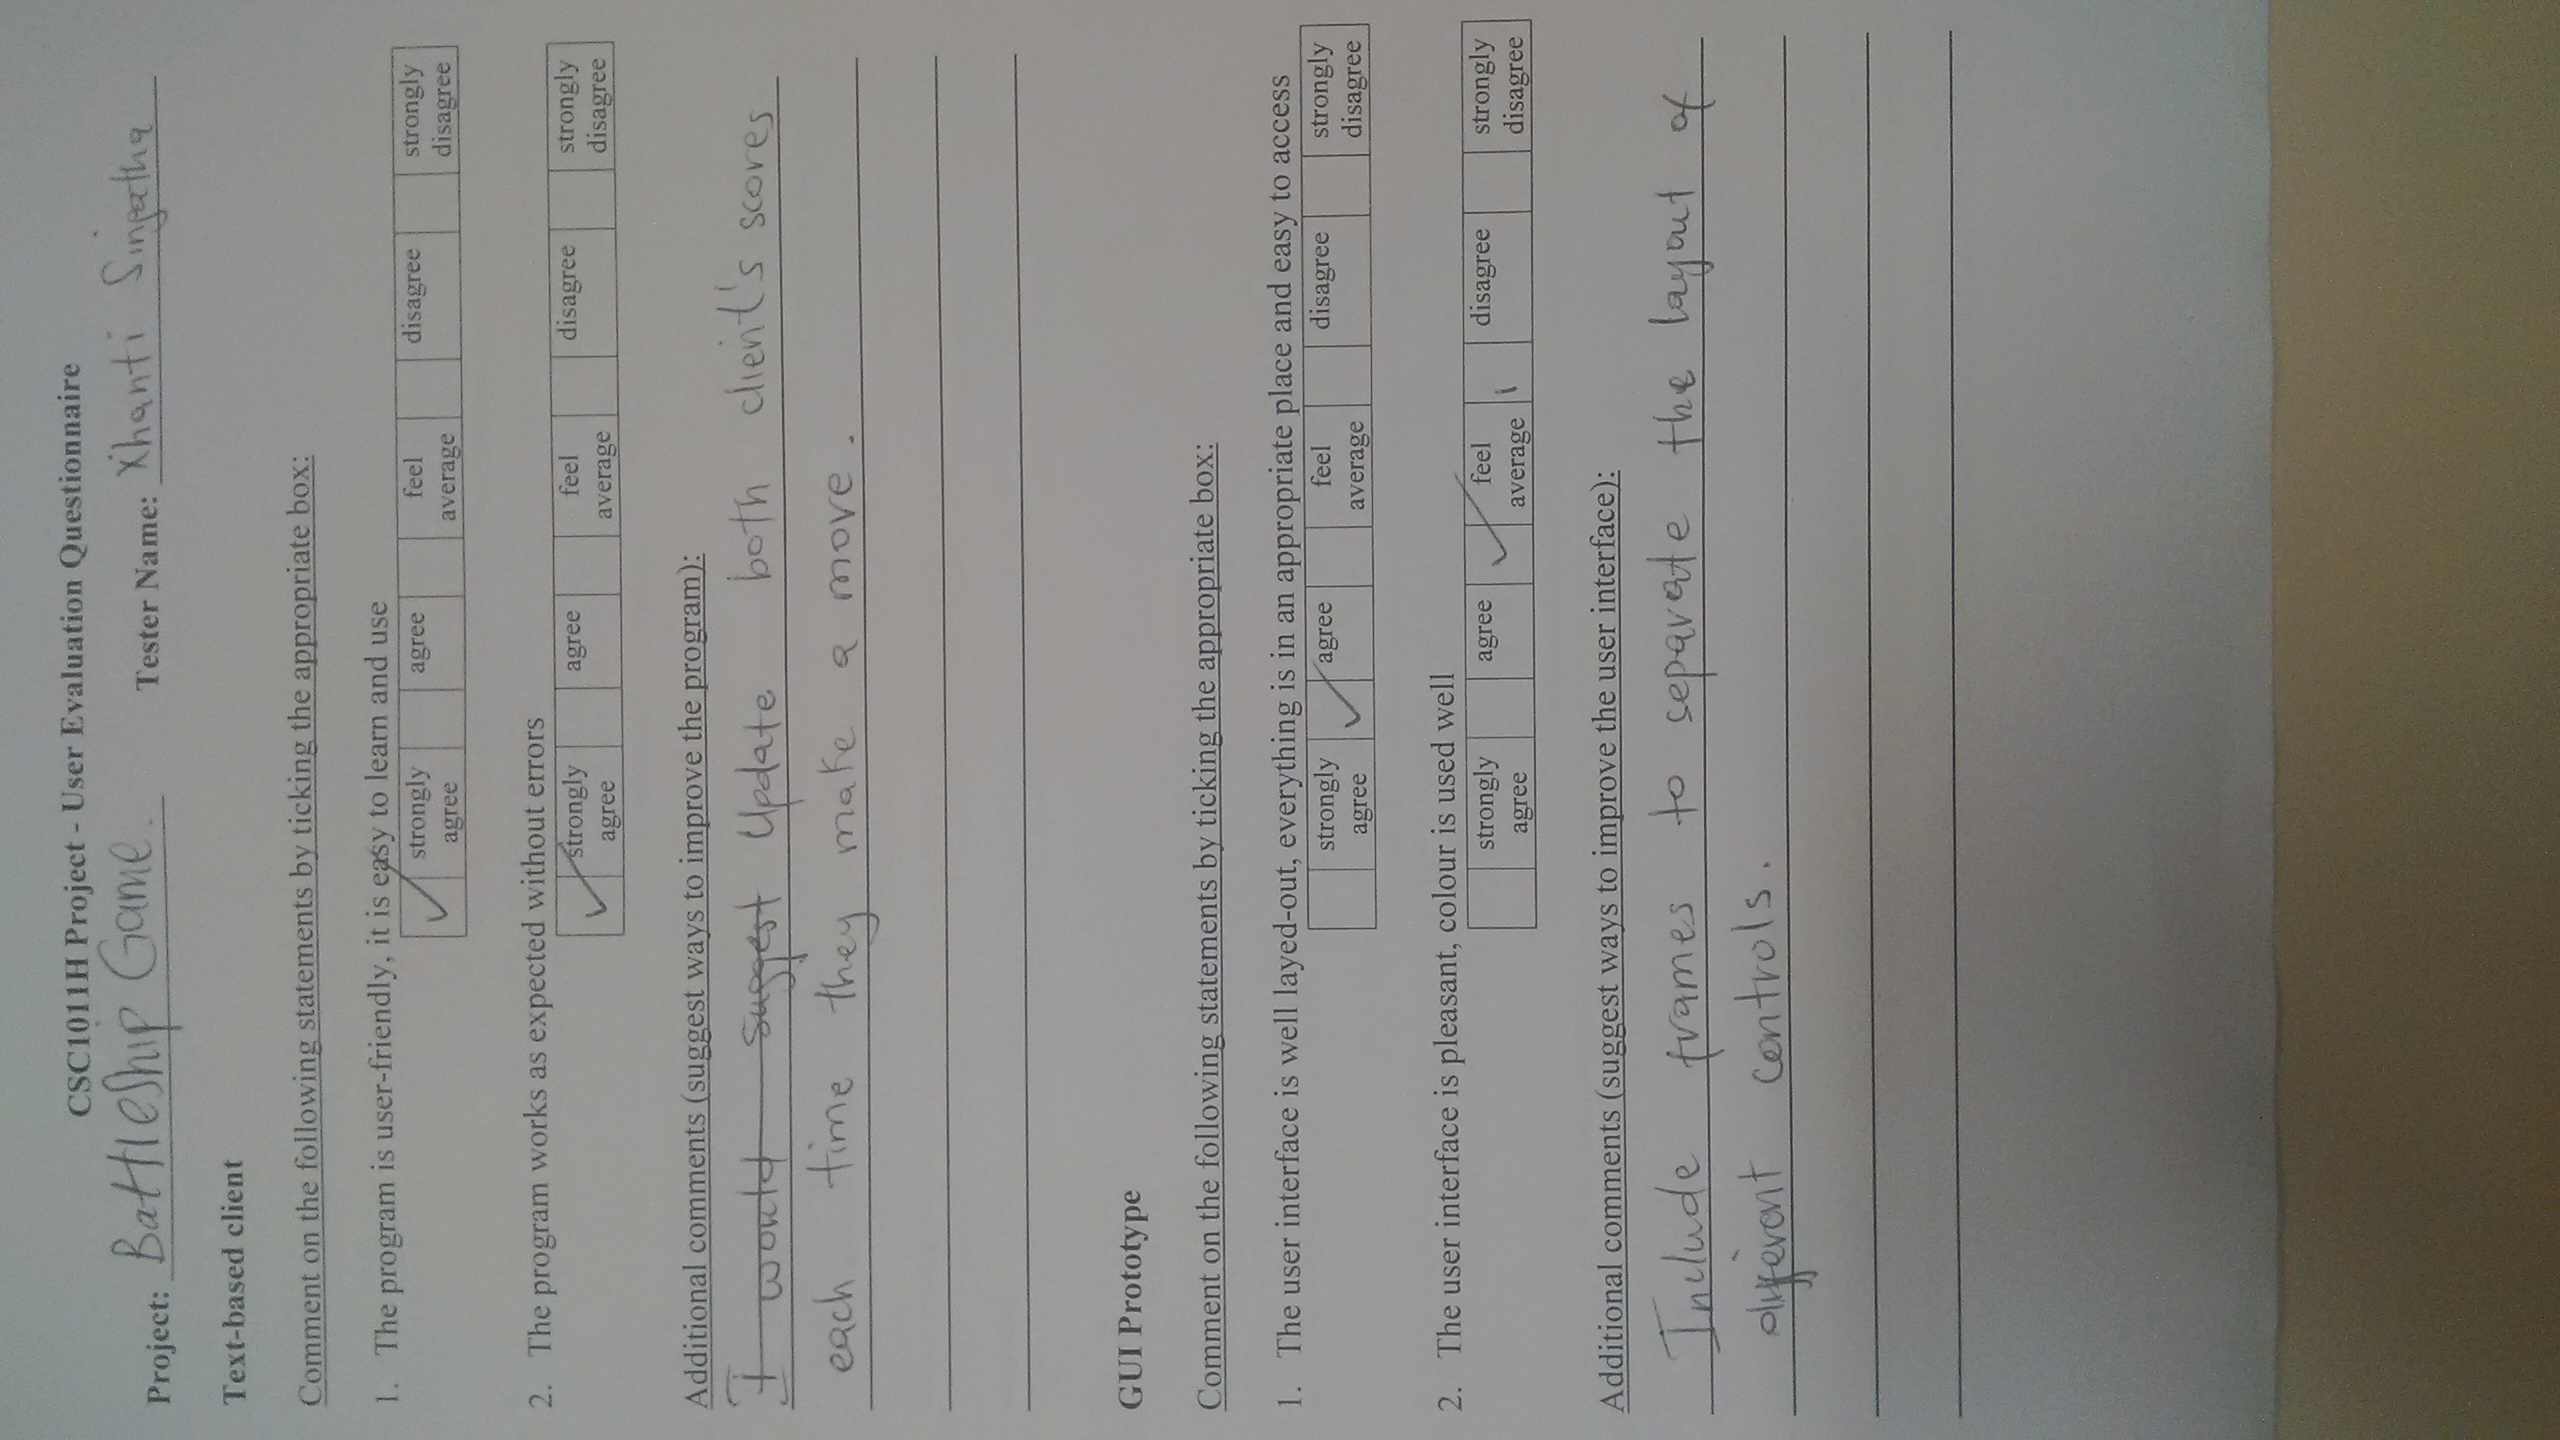 CSC1011H Project - User Evaluation Questionnaire
Project: BattleShip Game. Tester Name: Xhanti
Text-based client
Comment on the following statements by ticking the appropriate box:
1. The program is user-friendly, it is easy to learn and use
✓ strongly agree agree feel average disagree strongly disagree
2. The program works as expected without errors
✓ strongly agree agree feel average disagree strongly disagree
Additional comments (suggest ways to improve the program):
I would suggest Update both client's scores
each time they make a move.
GUI Prototype
Comment on the following statements by ticking the appropriate box:
1. The user interface is well layed-out, everything is in an appropriate place and easy to access
strongly agree ✓ agree feel average disagree strongly disagree
2. The user interface is pleasant, colour is used well
strongly agree agree ✓ feel average disagree strongly disagree
Additional comments (suggest ways to improve the user interface):
Include frames to separate the layout of
different controls.